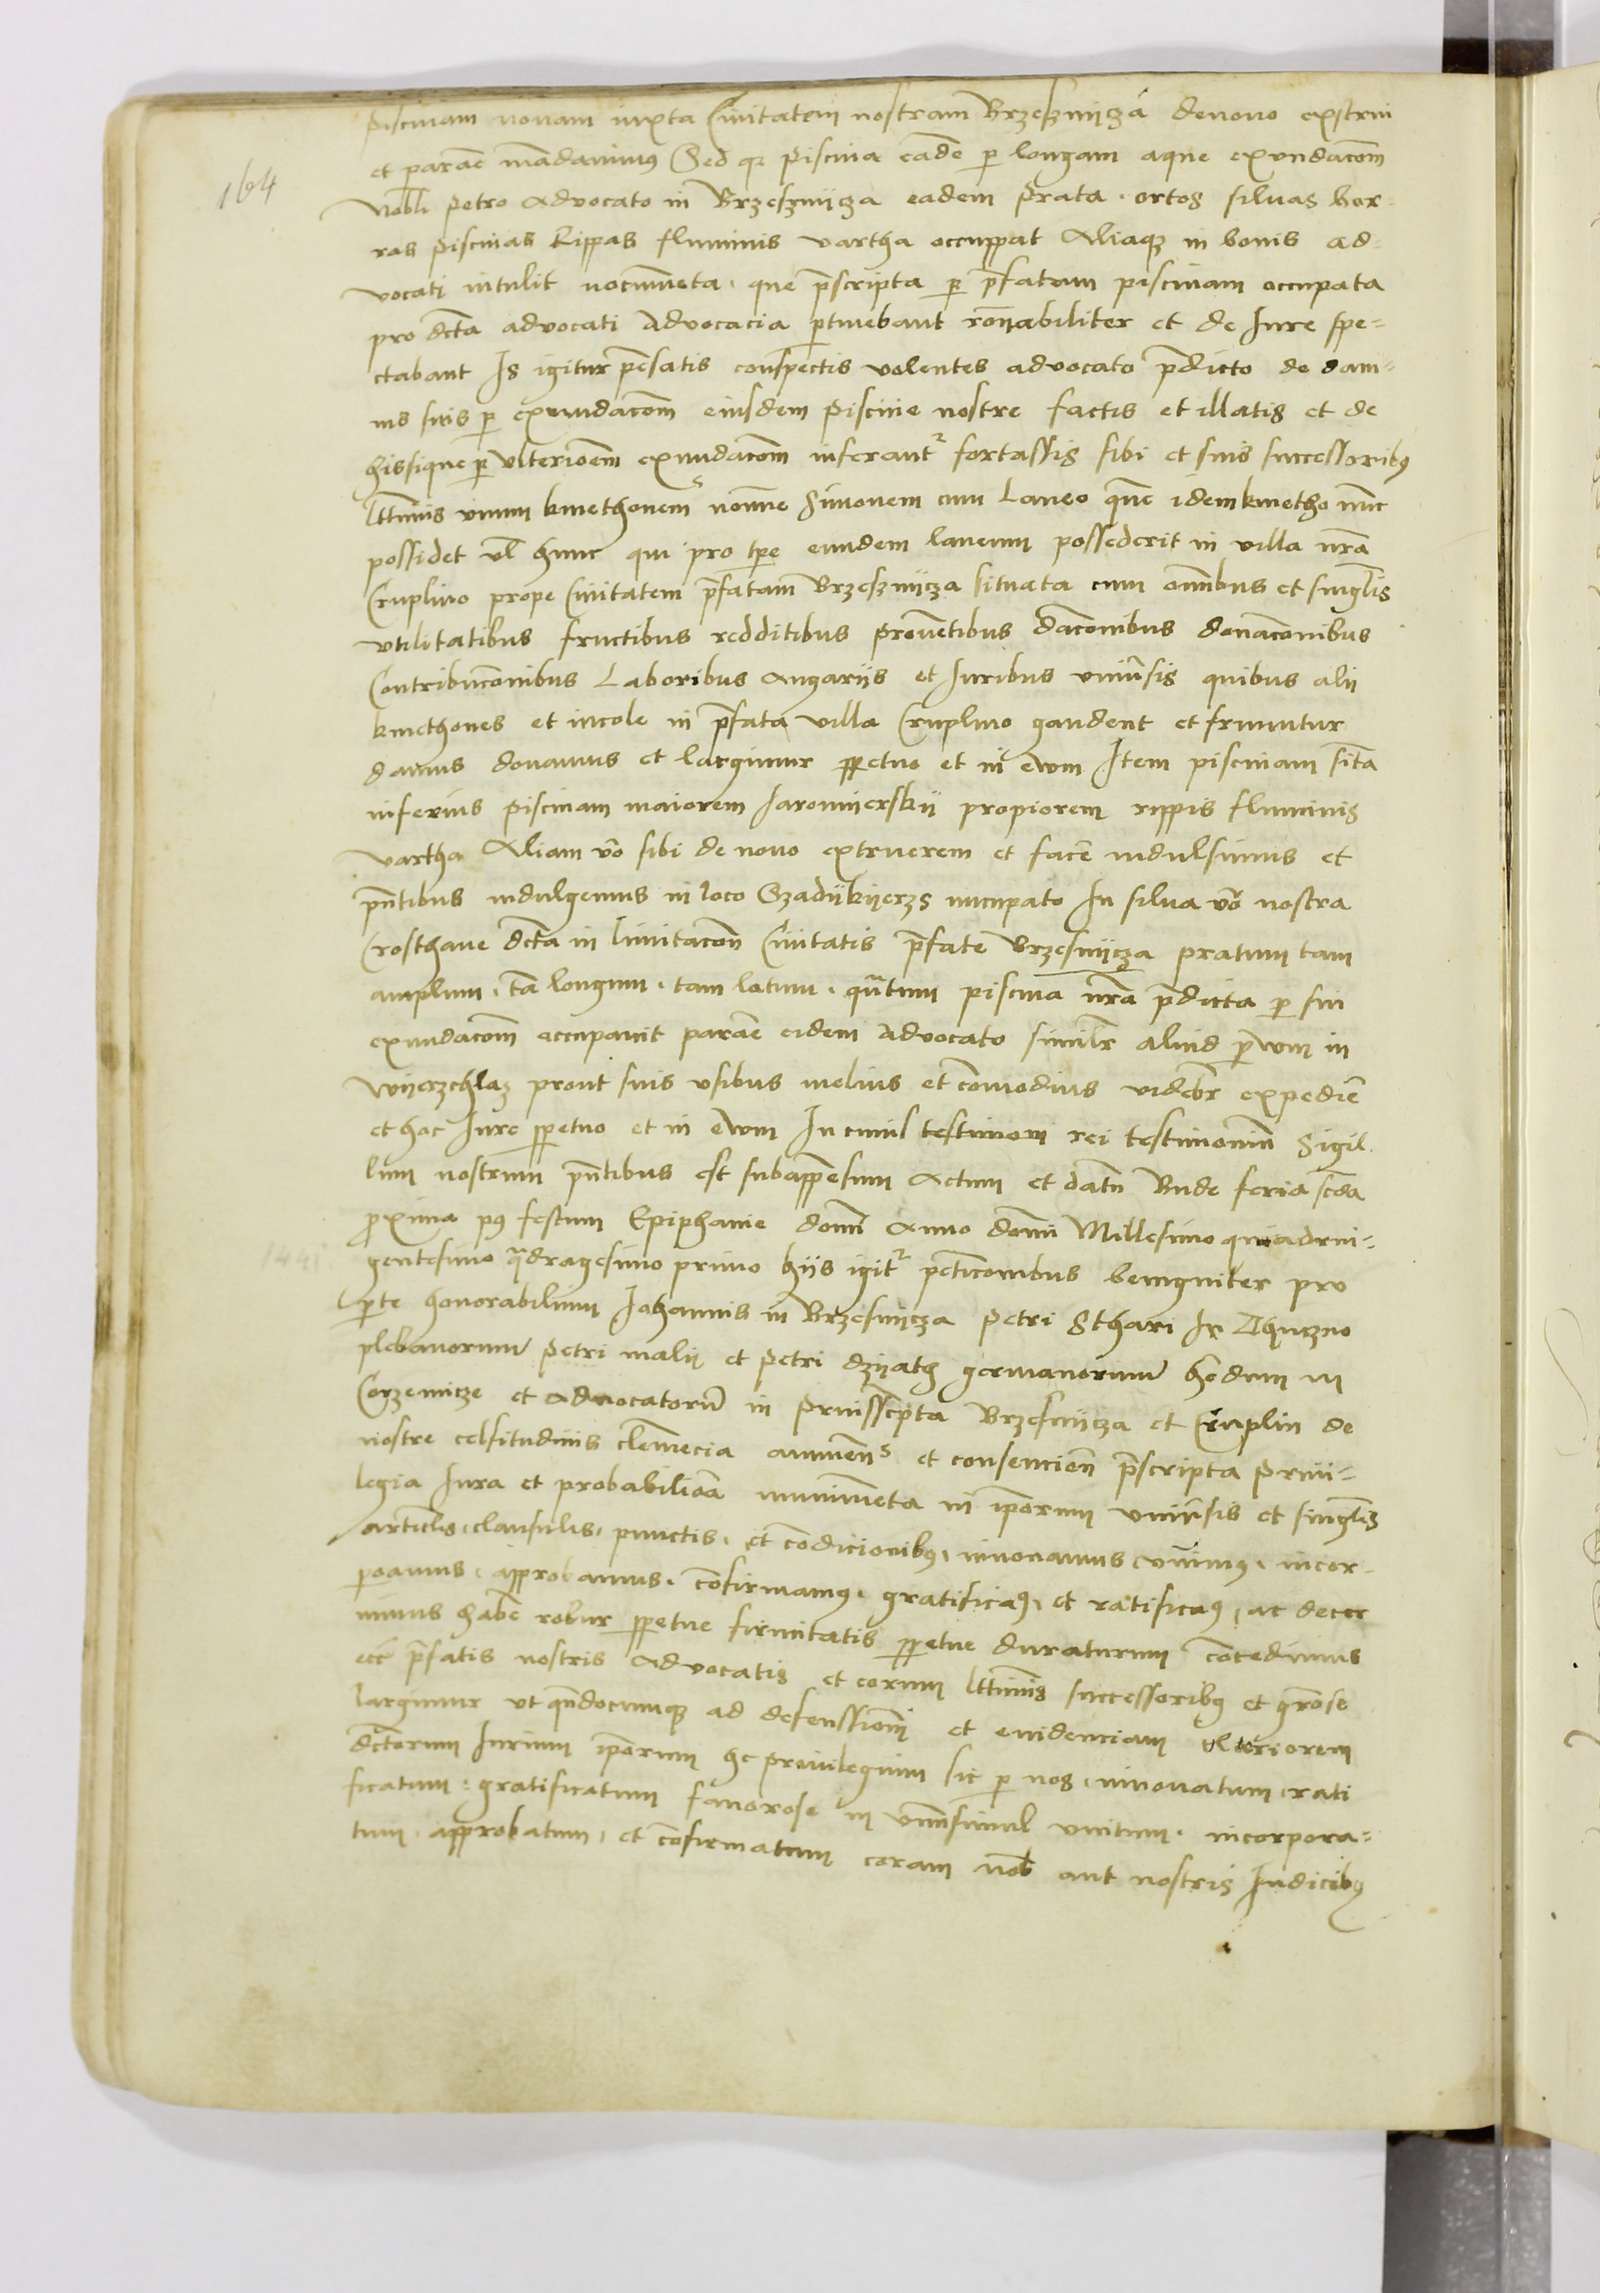 piscinam novam iuxta Civitatem nostram Brzesznijcza denovo exstrui
et parare mandavimus Sed quia piscina eadem per longam aque exundacom
164
Nobli Petro Advocato in Brzesznijcza eadem prata . ortos silvas bor-
ras piscinas Rippas fluminis vartha occuppat Aliaque in bonis ad-
vocati intulit nocumenta . que prescripta per prefatam piscinam occupata
pro dicta advocati Advocacia pertinebant ronabiliter et de Iure spe-
ctabant Is igitur pensatis conspectis volentes advocato predicto de dam-
nis suis per exundacom eiusdem piscine nostre factis et illatis et de
hissique per ulteriorem exundacom inferantur fortassis sibi et suis successoribus
lttimis unum kmethonem nomine Simonem cum Laneo quem idem kmetho nunc
possidet vel hunc qui pro tpre eundem laneum possederit in villa nra
Cruplino prope Civitatem prefatam Brzesznijcza situata cum omnibus et singlis
utilitatibus fructibus redditibus proventibus dacionibus donacionibus
Contribucionibus Laboribus Angariis et Iuribus universis quibus alii
kmethones et incole in prefata villa Cruplino gaudent et fruuntur
damus donamus et largimur perpetuo et in evum Item piscinam sitam
inferius piscinam maiorem Iaromijerskij propiorem rippis fluminis
vartha Aliam vero sibi de novo extruerem et facere indulsimus et
pntibus indulgemus in loco Gzadijkijerzs nucupato In silva vero nostra
Crosthave dicta in limitacom Civitatis prefate Brzesnijcza pratum tam
amplum . tam longum . tam latum . quantum piscina nra predicta per sui
exundacom occupavit parare eidem Advocato similr aliud pratum in
Wijerzchlasz prout suis usibus melius et commodius videbr expedire
et hoc Iure perpetuo et in evum In cuius testimoni rei testimonium Sigil-
lum nostrum pntibus est subappensum Actum et datum Bude feria scda
proxima post festum Epiphanie domi Anno domi Millesimo quadrin-
1441
gentesimo quadragesimo primo hijs igitur peticionibus benigniter pro
parte honorabilium Iohannis in Brzesnijcza Petri Sthari In
plebanorum Petri malij et Petri dzijath germanorum heredum in
Corzenicze et Advocatorum in prinisscripta Brzesnijcza et Cruplin de
nostre celsitudinis clemencia annuentes et consencientes prescripta privi-
legia Iura et probabiliora munimenta in ipsorum universis et singlis
articulis, clausulis, punctis, et condicionibus, innovamus unimus, incor-
poramus, approbamus, confirmamus, gratificamus, et ratificamus, ac decer
nimus habere robur perpetue firmitatis perpetue duraturum concedimus
prefatis nostris Advocatis et eorum lttimis successoribus et grose
largimur ut quandocumque ad defenssionem et evidenciam ulteriorem
dictorum Iurium ipsorum hoc privilegium sic per nos, innovatum, rati
ficatum, gratificatum favorose in unumsimul unitum, incorpora-
tum, approbatum, et confirmatum coram nob aut nostris Iudicibus